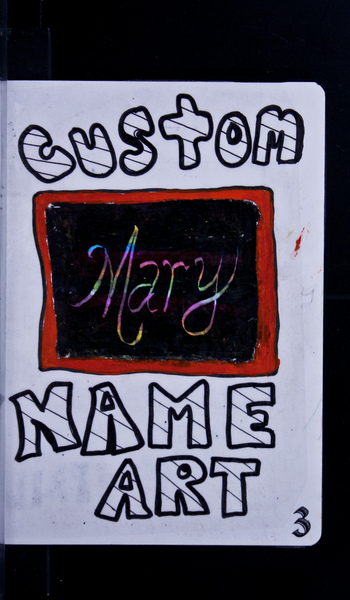 CUSTOM
Mary
NAME
ART
3